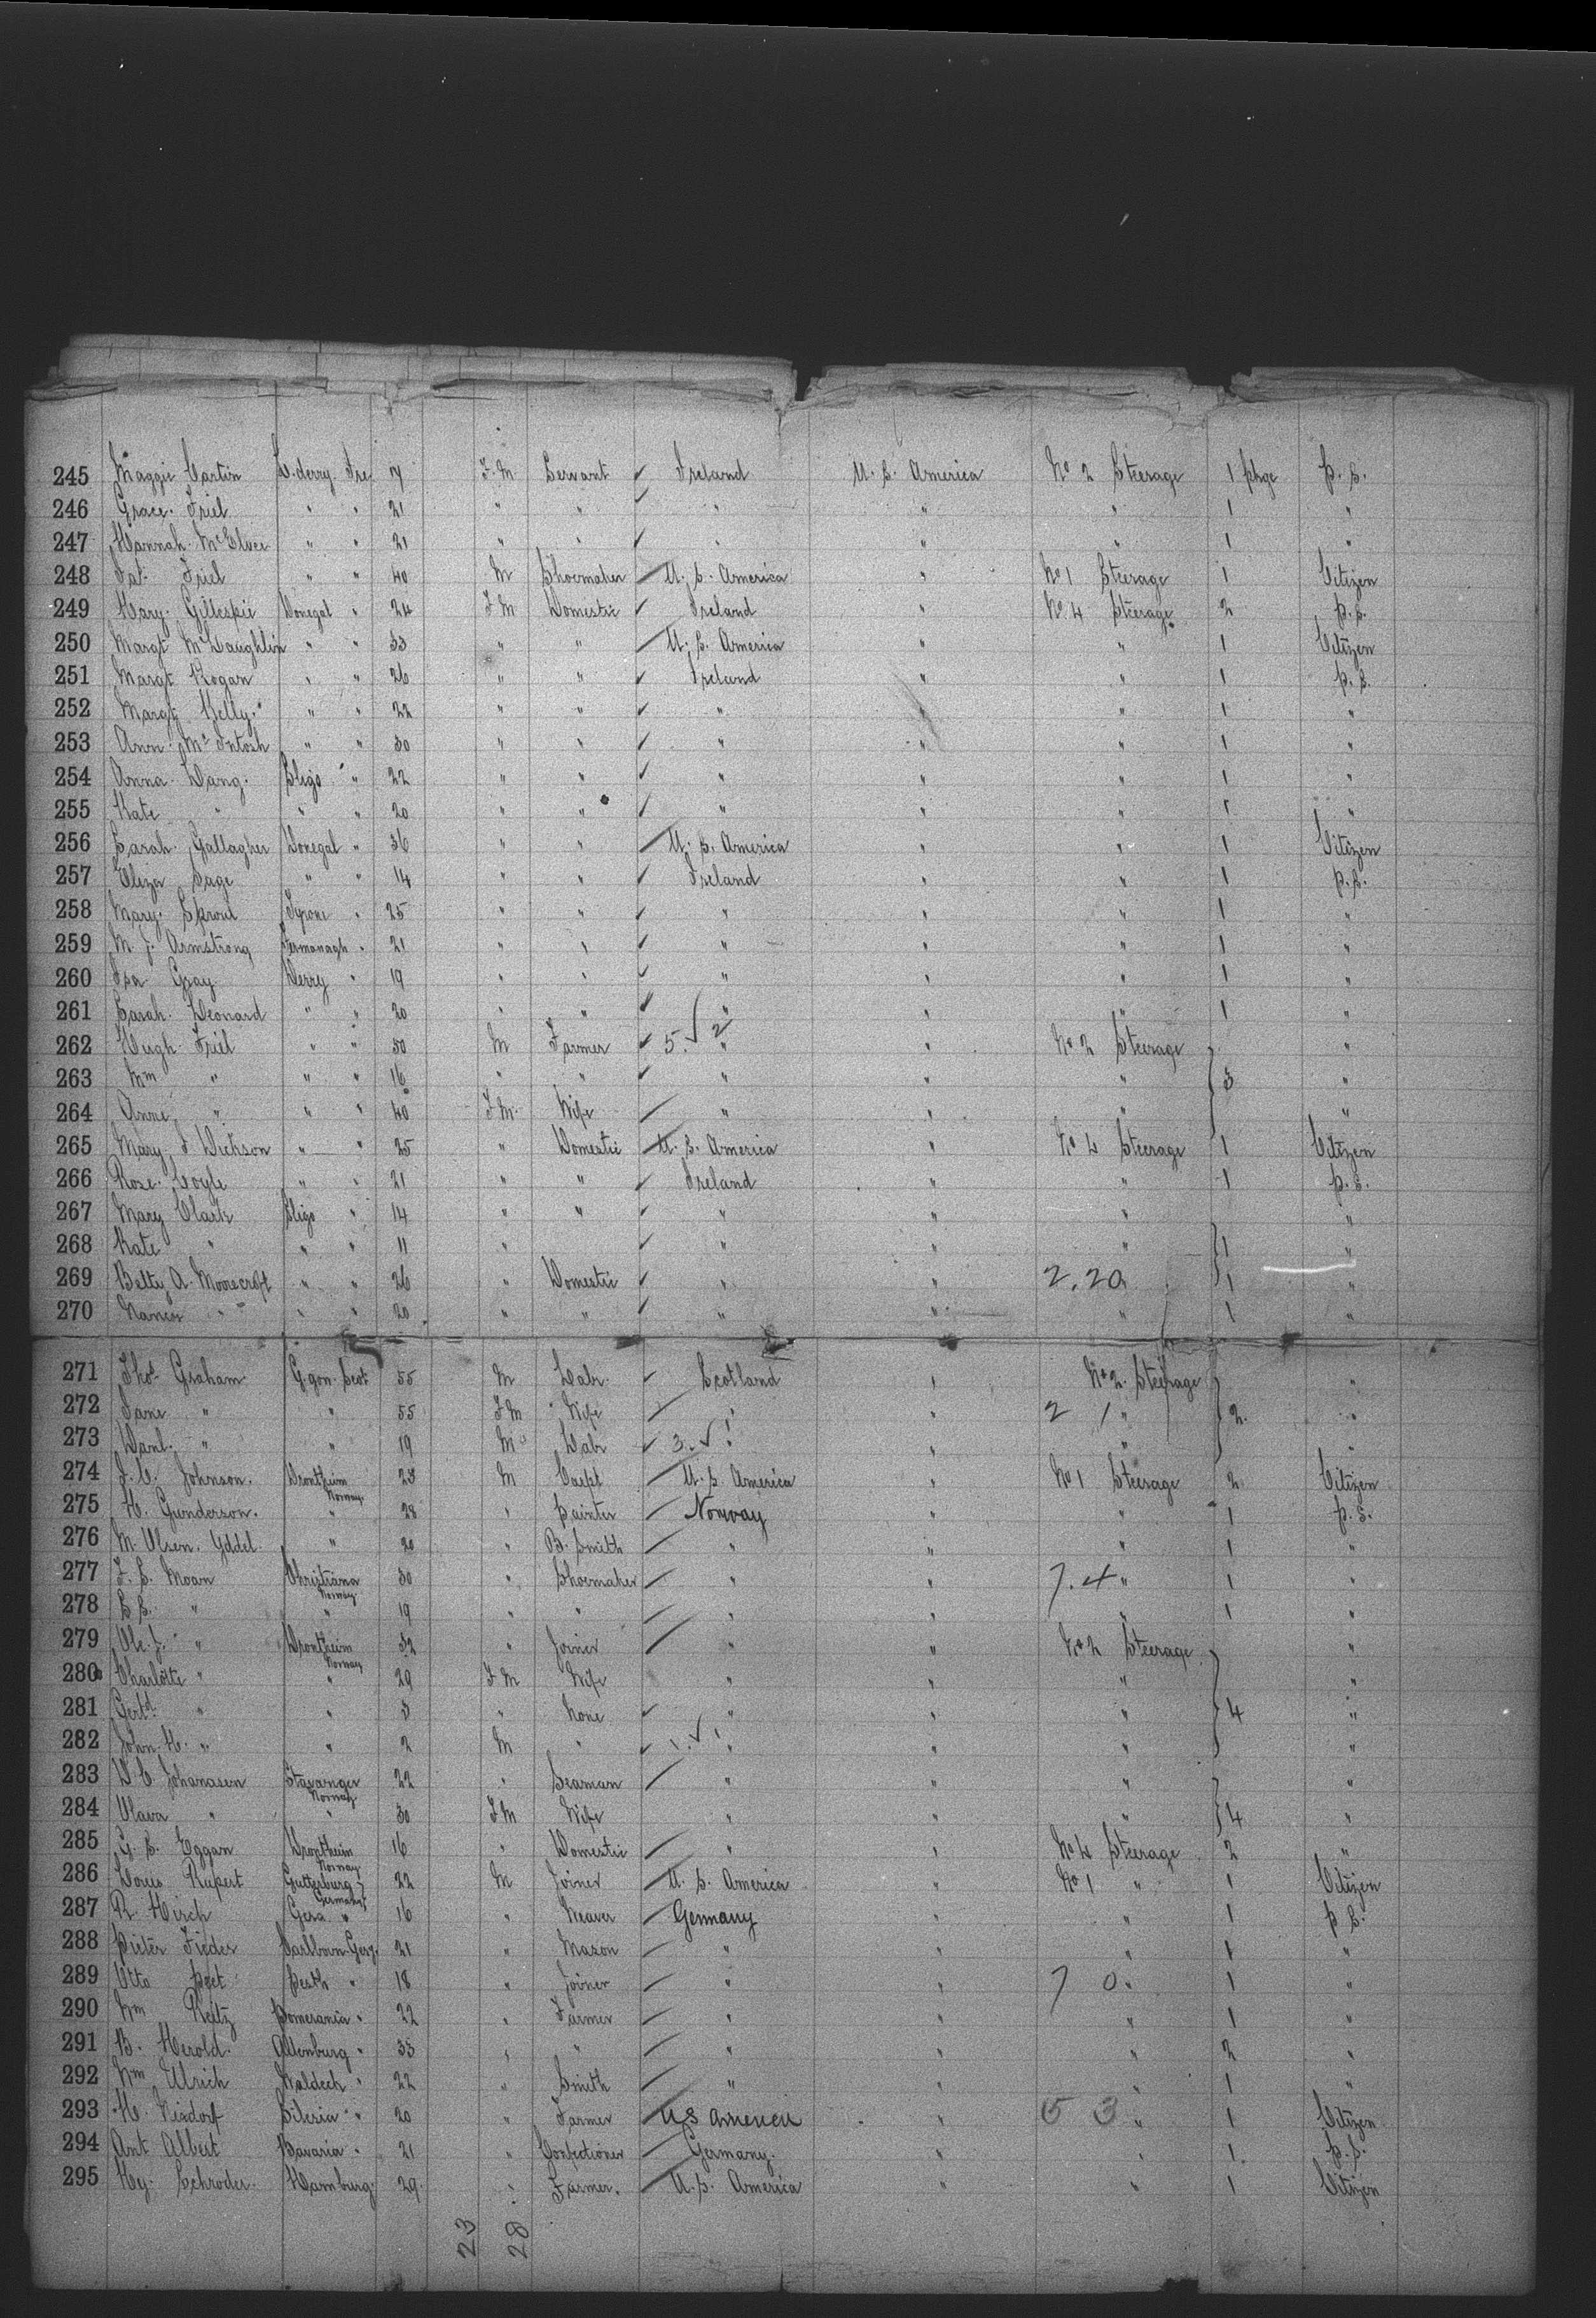 245 Maggie Cartin L.derry Ire 17 F.M Servant ✓ Ireland U.S. America No 2 Steerage 1 pkge P.S.
246 Grace Friel " " 21 " " ✓ " " " 1 "
247 Hannah McElwee " " 21 " " ✓ " " " 1 "
248 Pat Friel " " 40 M Shoemaker U.S. America " No 1 Steerage 1 Citizen
249 Mary Gillespie Donegal " 24 F M Domestic Ireland " No 4 Steerage 2 P.S.
250 Margt McLaughlin " " 33 " " U.S. America " " 1 Citizen
251 Margt Rogan " " 26 " " ✓ Ireland " " 1 P.S.
252 Margt Kelly " " 22 " " ✓ " " " 1 "
253 Ann McIntosh " " 30 " " ✓ " " " 1 "
254 Anna Lang Sligo " 22 " " ✓ " " " 1 "
255 Kate " " " 20 " " ✓ " " " 1 "
256 Sarah Gallagher Donegal " 36 " " U.S. America " " 1 Citizen
257 Eliza Page " " 14 " " ✓ Ireland " " 1 P.S.
258 Mary Sproul Tyrone " 25 " " ✓ " " " 1 "
259 M. J. Armstrong Fermanagh " 21 " " ✓ " " " 1 "
260 Isa Gray Derry " 19 " " ✓ " " " 1 "
261 Sarah Leonard " " 20 " " ✓ " " " 1 "
262 Hugh Friel " " 50 M Farmer ✓ 5.✓2 " " No 2 Steerage "
263 Wm " " " 16 " " ✓ " " " 3 "
264 Anne " " " 40 F M Wife " " " "
265 Mary J Dickson " " 25 " Domestic U.S. America " No 4 Steerage 1 Citizen
266 Rose Coyle " " 21 " " ✓ Ireland " " 1 P.S.
267 Mary Clark Sligo " 14 " " ✓ " " " "
268 Kate " " " 11 " ✓ " " " 1 "
269 Betty A. Moorecroft " " 26 " Domestic ✓ " " 2.20 1 "
270 Nancy " " " 20 " " ✓ " " " 1 "
271 Thos Graham G.gow Scot 55 M Labr. ✓ Scotland " No 2 Steerage "
272 Jane " " 55 F M Wife " " 2 1 " 2 "
273 Danl. " " 19 M Labr ✓ 3.✓1 " " " "
274 J. C. Johnson. Drontheim Norway 23 M Carpt U.S. America " No 1 Steerage 2 Citizen
275 H. Gunderson. " 28 " Painter Norway " " 1 P.S.
276 M. Olsen. " 20 " B. Smith " " " 1 "
277 F. S. Moan Christiana Norway 30 " Shoemaker " " 7.4 " 1 "
278 " " 19 " " " " " 1 "
279 Ole J. " Drontheim Norway 32 " Joiner " " No 2 Steerage "
280 Charlotte " " 29 F M Wife " " " "
281 " " 3 " None ✓ " " " 4 "
282 John H. " " 2 M " ✓ 1.✓1 " " " "
283 Johanasen Stavanger Norway 22 " Seaman " " " "
284 Olava " " 30 F M Wife " " " 4 "
285 G. S. Eggan Drontheim Norway 16 " Domestic " " No 4 Steerage 2 "
286 Louis Rupert Germany 22 M Joiner U.S. America " No 1 " 1 Citizen
287 R. Hirch Gera " 16 " Weaver Germany " " 1 P.S.
288 21 " Mason " " " 1 "
289 Otto Post " 18 " Joiner " " 7 0 " 1 "
290 Wm Reitz Pomerania " 22 " Farmer " " " 1 "
291 B. Herold. Altenburg " 33 " " " " " 2 "
292 Wm Ulrich Waldech " 22 " Smith " " " 1 "
293 H. Nixdorf Silesia " 20 " Farmer U S America " 5 3 " 1 Citizen
294 Ant Albert Bavaria " 21 " Confectioner Germany. " " 1 P.S.
295 Hy. Schroder. Hamburg 29 " Farmer. U.S. America " " 1 Citizen
23 28